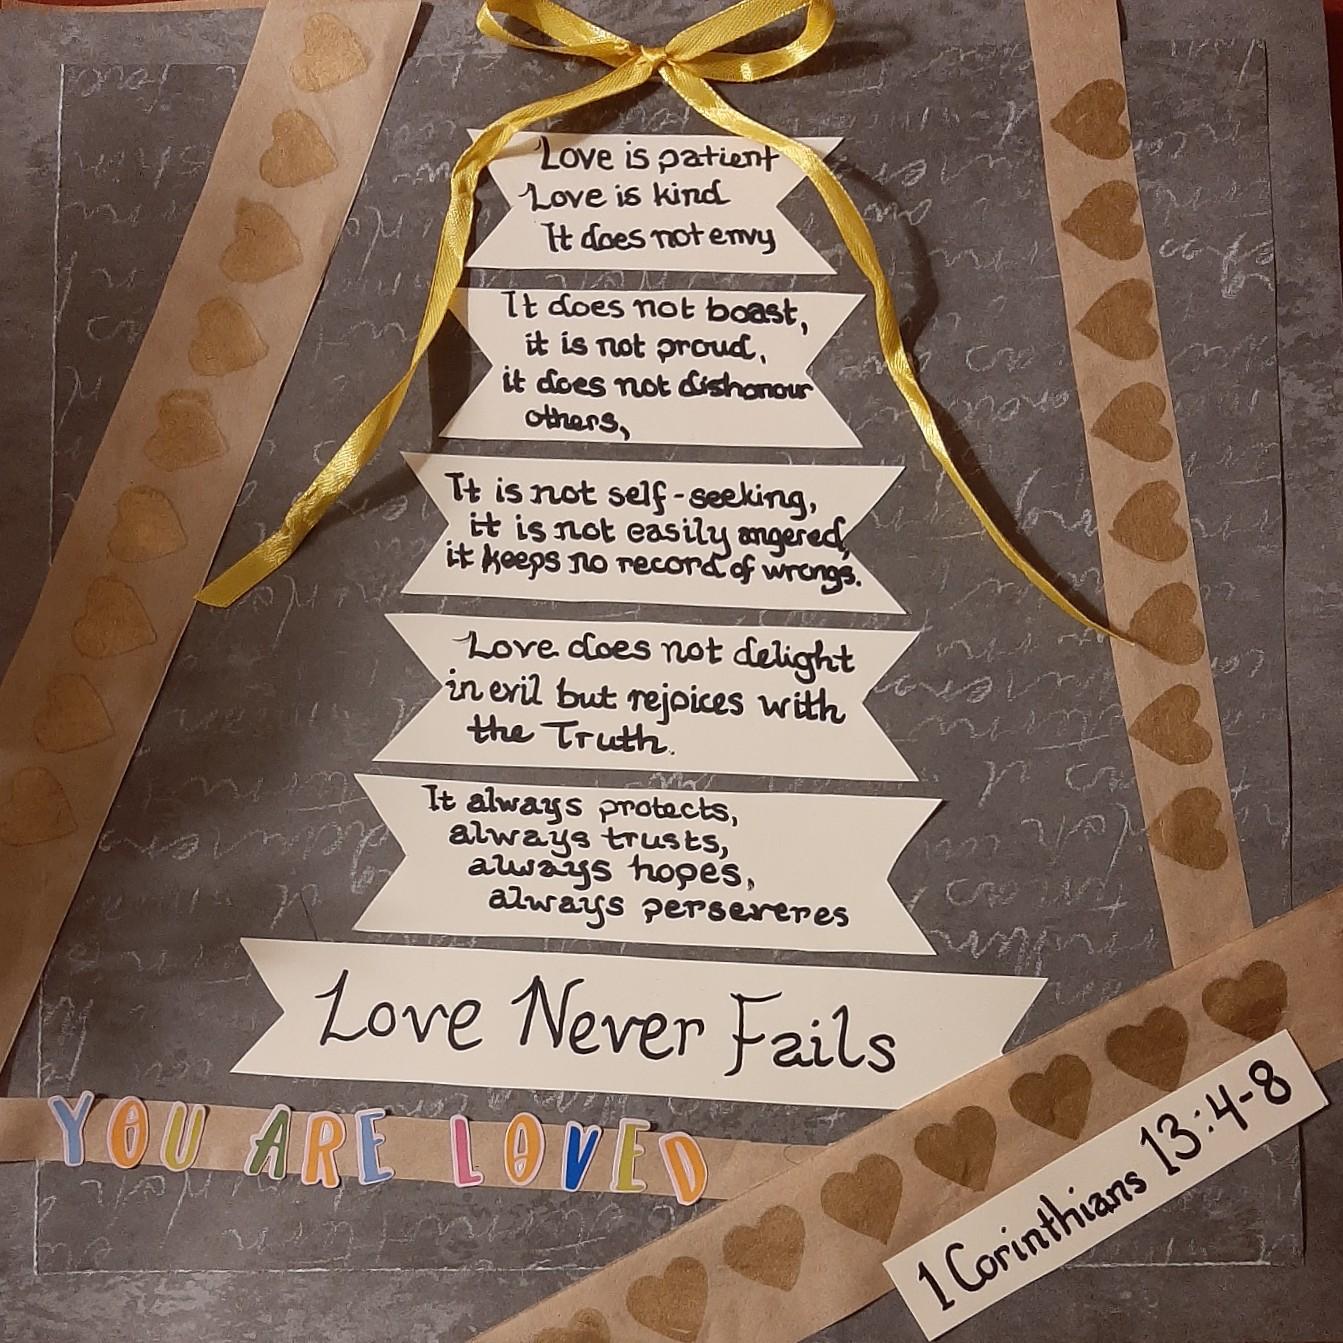 Love is patient
Love is kind
It does not envy
It does not boast,
it is not proud,
it does not dishonour
others,
It is not self-seeking,
it is not easily angered,
it keeps no record of wrongs.
Love does not delight
in evil but rejoices with
the Truth.
It always protects,
always trusts,
always hopes,
always perseveres
Love Never Fails
YOU ARE LOVED
1 Corinthians 13:4-8